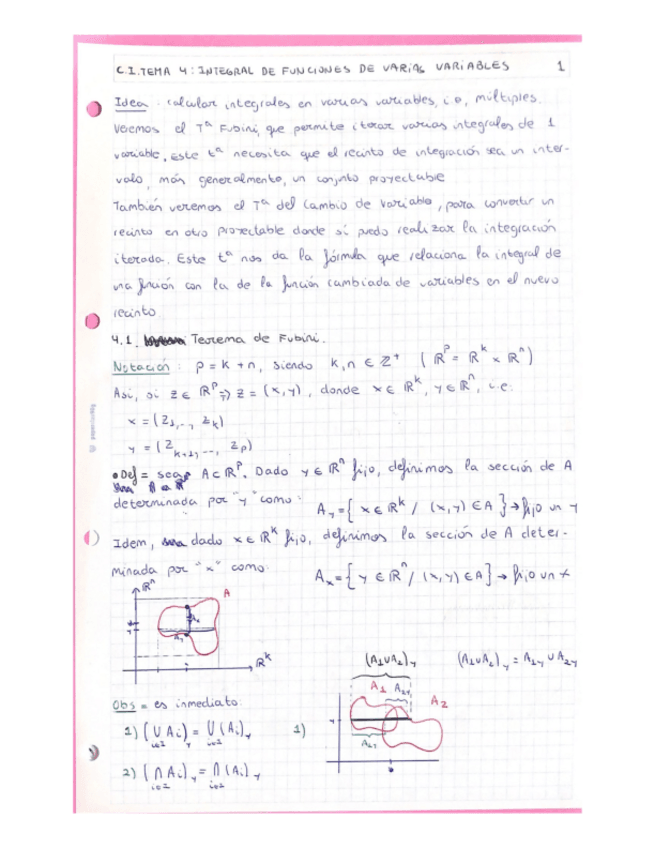 C.I. TEMA 4: INTEGRAL DE FUNCIONES DE VARIAS VARIABLES 1
Idea: calcular integrales en varias variables, i.e, múltiples.
Veremos el Tª Fubini, que permite iterar varias integrales de 1
variable, Este tª necesita que el recinto de integración sea un inter-
valo, más generalmente, un conjunto proyectable
También veremos el Tª del Cambio de Variable, para convertir un
recinto en otro proyectable donde sí puedo realizar la integración
iterada. Este tª nos da la fórmula que relaciona la integral de
una función con la de la función cambiada de variables en el nuevo
recinto
4.1. Teorema de Fubini.
Notación: p = k + n, siendo k, n ∈ ℤ⁺ (ℝᵖ = ℝᵏ × ℝⁿ)
Así, si z ∈ ℝᵖ ⇒ z = (x, y), donde x ∈ ℝᵏ, y ∈ ℝⁿ, i.e.
x = (z₁, .., z_k)
y = (z_{k+1}, ..., z_p)
• Def = sea A ⊂ ℝᵖ. Dado y ∈ ℝⁿ fijo, definimos la sección de A
determinada por "y" como: A_y = { x ∈ ℝᵏ / (x, y) ∈ A } → fijo un y
Idem, dado x ∈ ℝᵏ fijo, definimos la sección de A deter-
minada por "x" como: A_x = { y ∈ ℝⁿ / (x, y) ∈ A } → fijo un x
ℝⁿ A
y A_x
A_y
ℝᵏ
(A₁∪A₂)_y (A₁∪A₂)_y = A₁y ∪ A₂y
Obs = es inmediato:
A₁ A₂y A₂
1) (∪ Ai)_y = ∪ (Ai)_y 1) y
i∈I i∈I
A₁y
2) (∩ Ai)_y = ∩ (Ai)_y
i∈I i∈I